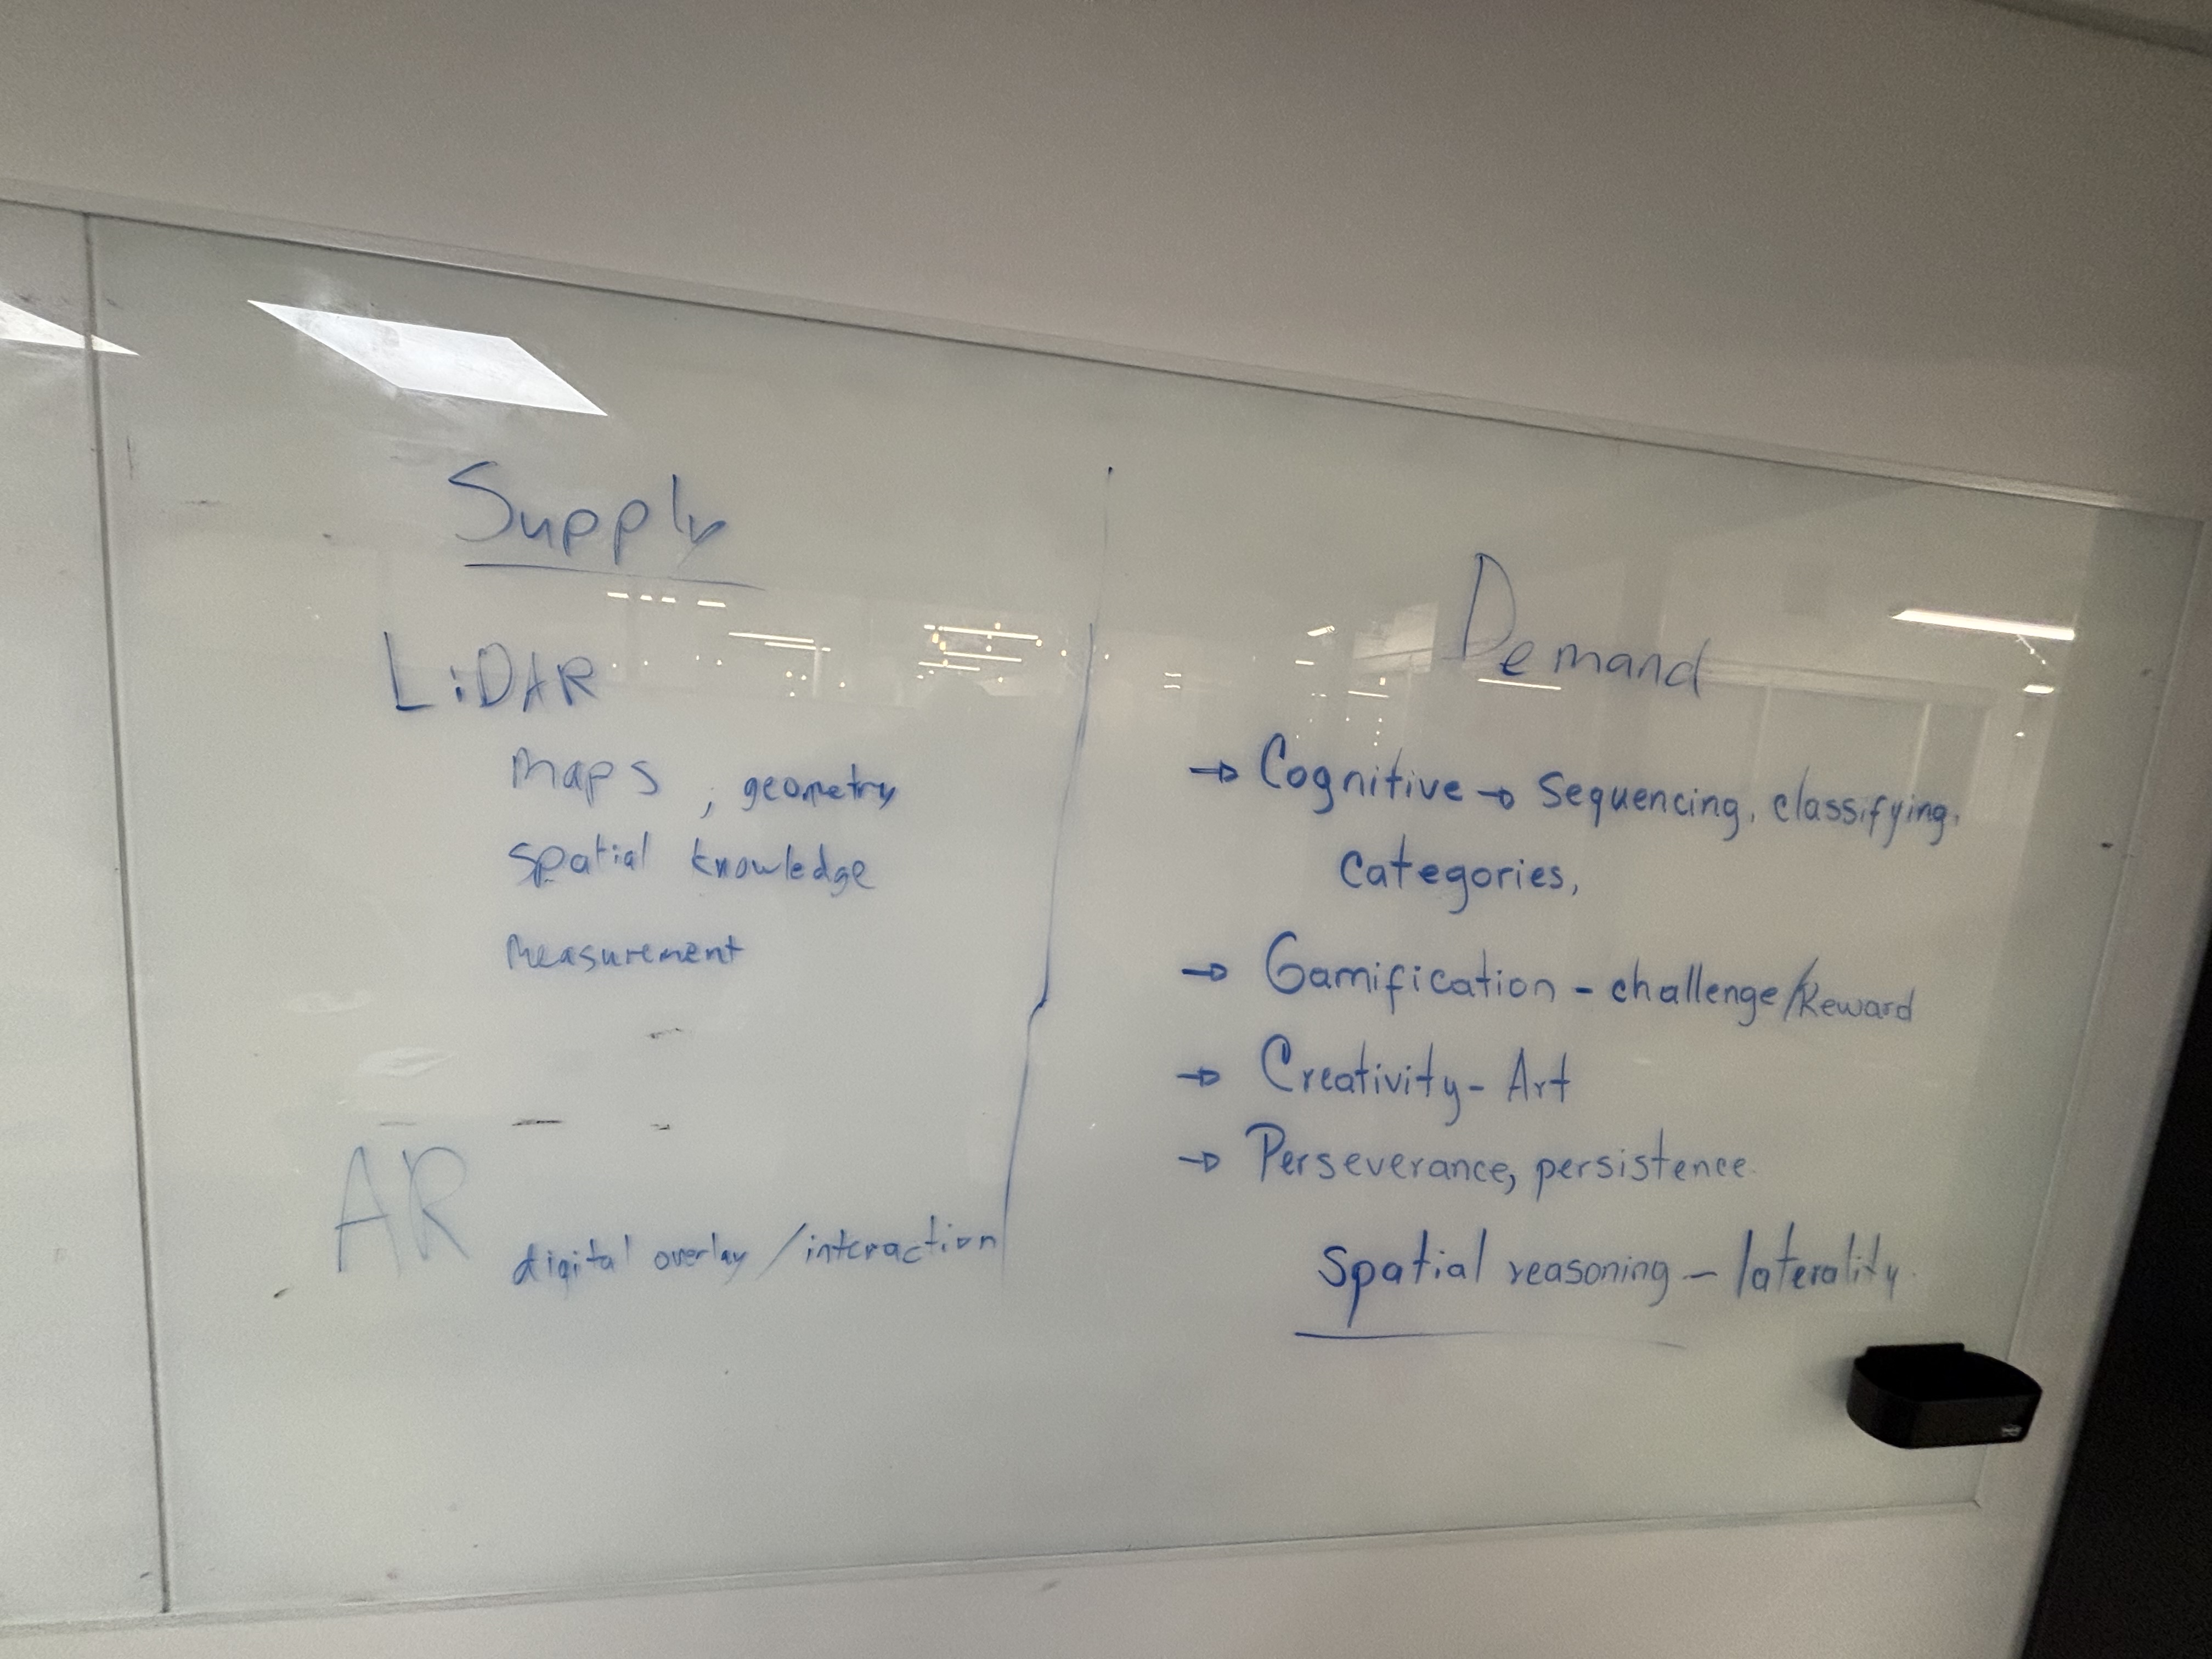 Supply
LiDAR
maps , geometry
spatial knowledge
measurement
AR
digital overlay / interaction
Demand
→ Cognitive → Sequencing, classifying,
Categories,
→ Gamification - challenge/Reward
→ Creativity - Art
→ Perseverance, persistence
Spatial reasoning - laterality